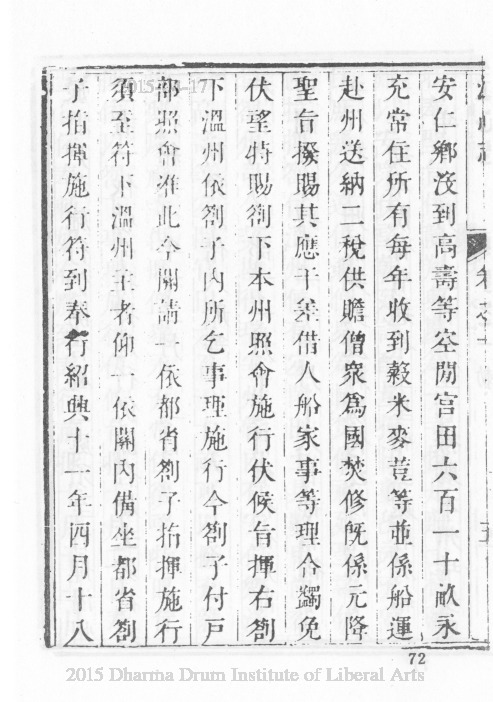 安仁鄉沒到高壽等空閒官田六百一十畝永
充常住所有每年收到穀米麥荳等並係船運
赴州送納二稅供贍僧衆爲國焚修旣係元降
聖旨撥賜其應干差借人船家事等理合蠲免
伏望特賜劄下本州照會施行伏候旨揮右劄
下溫州依劄子內所乞事理施行今劄子付戶
部照會准此今關請一依都省劄子指揮施行
須至符下溫州主者仰一依關內備坐都省劄
子指揮施行符到奉行紹興十一年四月十八
72
2015 Dharma Drum Institute of Liberal Arts